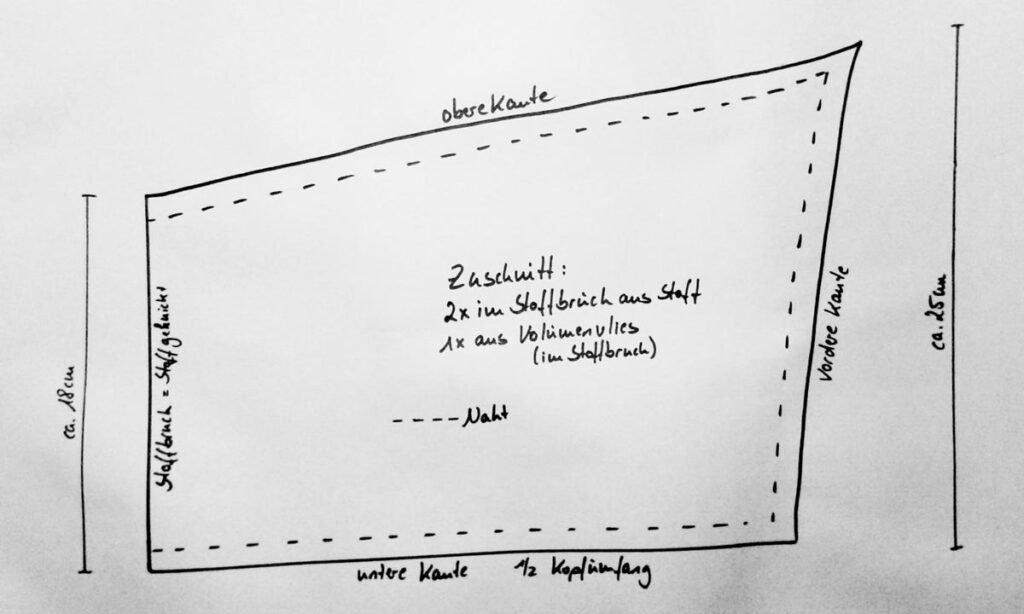 obere Kante
ca. 25cm
ca. 18cm
Stoffbruch = Stoff geknickt
Zuschnitt:
2x im Stoffbruch aus Stoff
1x aus Volumenvlies
(im Stoffbruch)
vordere Kante
---- Naht
untere Kante 1/2 Kopfumfang